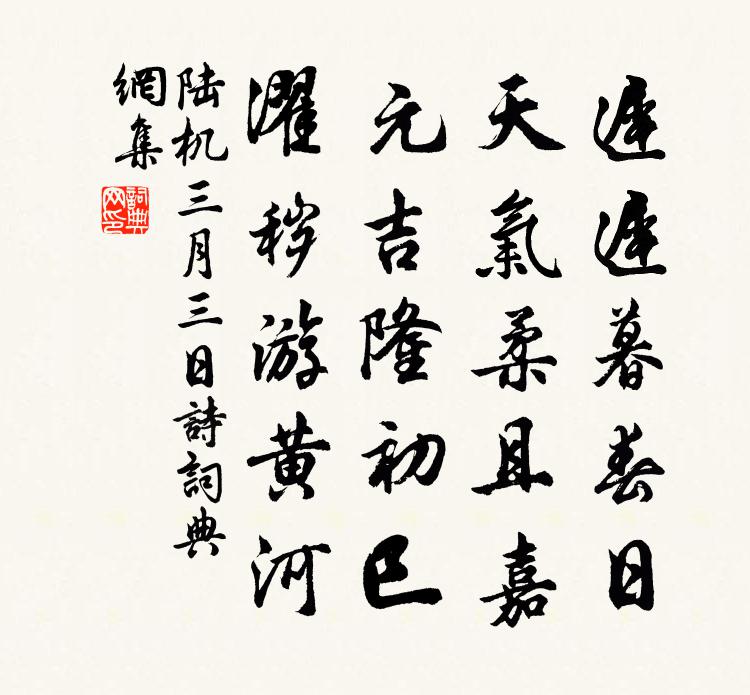 遲遲暮春日
天氣柔且嘉
元吉隆初巳
濯穢游黄河
陆机三月三日詩詞典
網集
詞典
网印